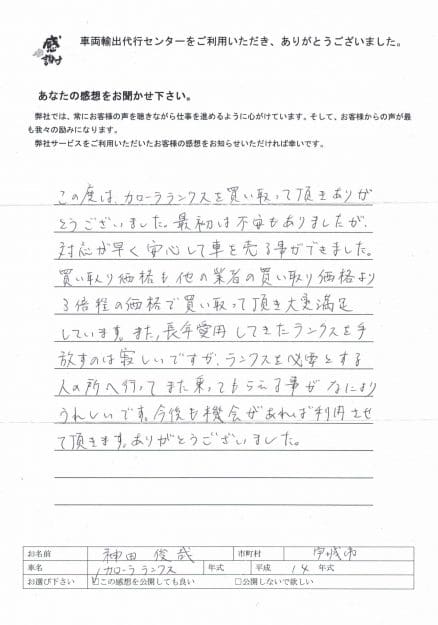 感謝
車両輸出代行センターをご利用いただき、ありがとうございました。
あなたの感想をお聞かせ下さい。
弊社では、常にお客様の声を聴きながら仕事を進めるように心がけています。そして、お客様からの声が最
も我々の励みになります。
弊社サービスをご利用いただいたお客様の感想をお知らせいただければ幸いです。
この度は、カローラランクスを買い取って頂きありが
とうございました。最初は不安もありましたが、
対応が早く安心して車を売る事ができました。
買い取り価格も他の業者の買い取り価格より
3倍程の価格で買い取って頂き大変満足
しています。また、長年愛用してきたランクスを手
放すのは寂しいですが、ランクスを必要とする
人の所へ行ってまた乗ってもらえる事がなにより
うれしいです。今後も機会があれば利用させ
て頂きます。ありがとうございました。
お名前 神田 俊哉 市町村 宇城市
車名 カローラランクス 年式 平成 14 年式
お選び下さい ☑この感想を公開しても良い □公開しないで欲しい